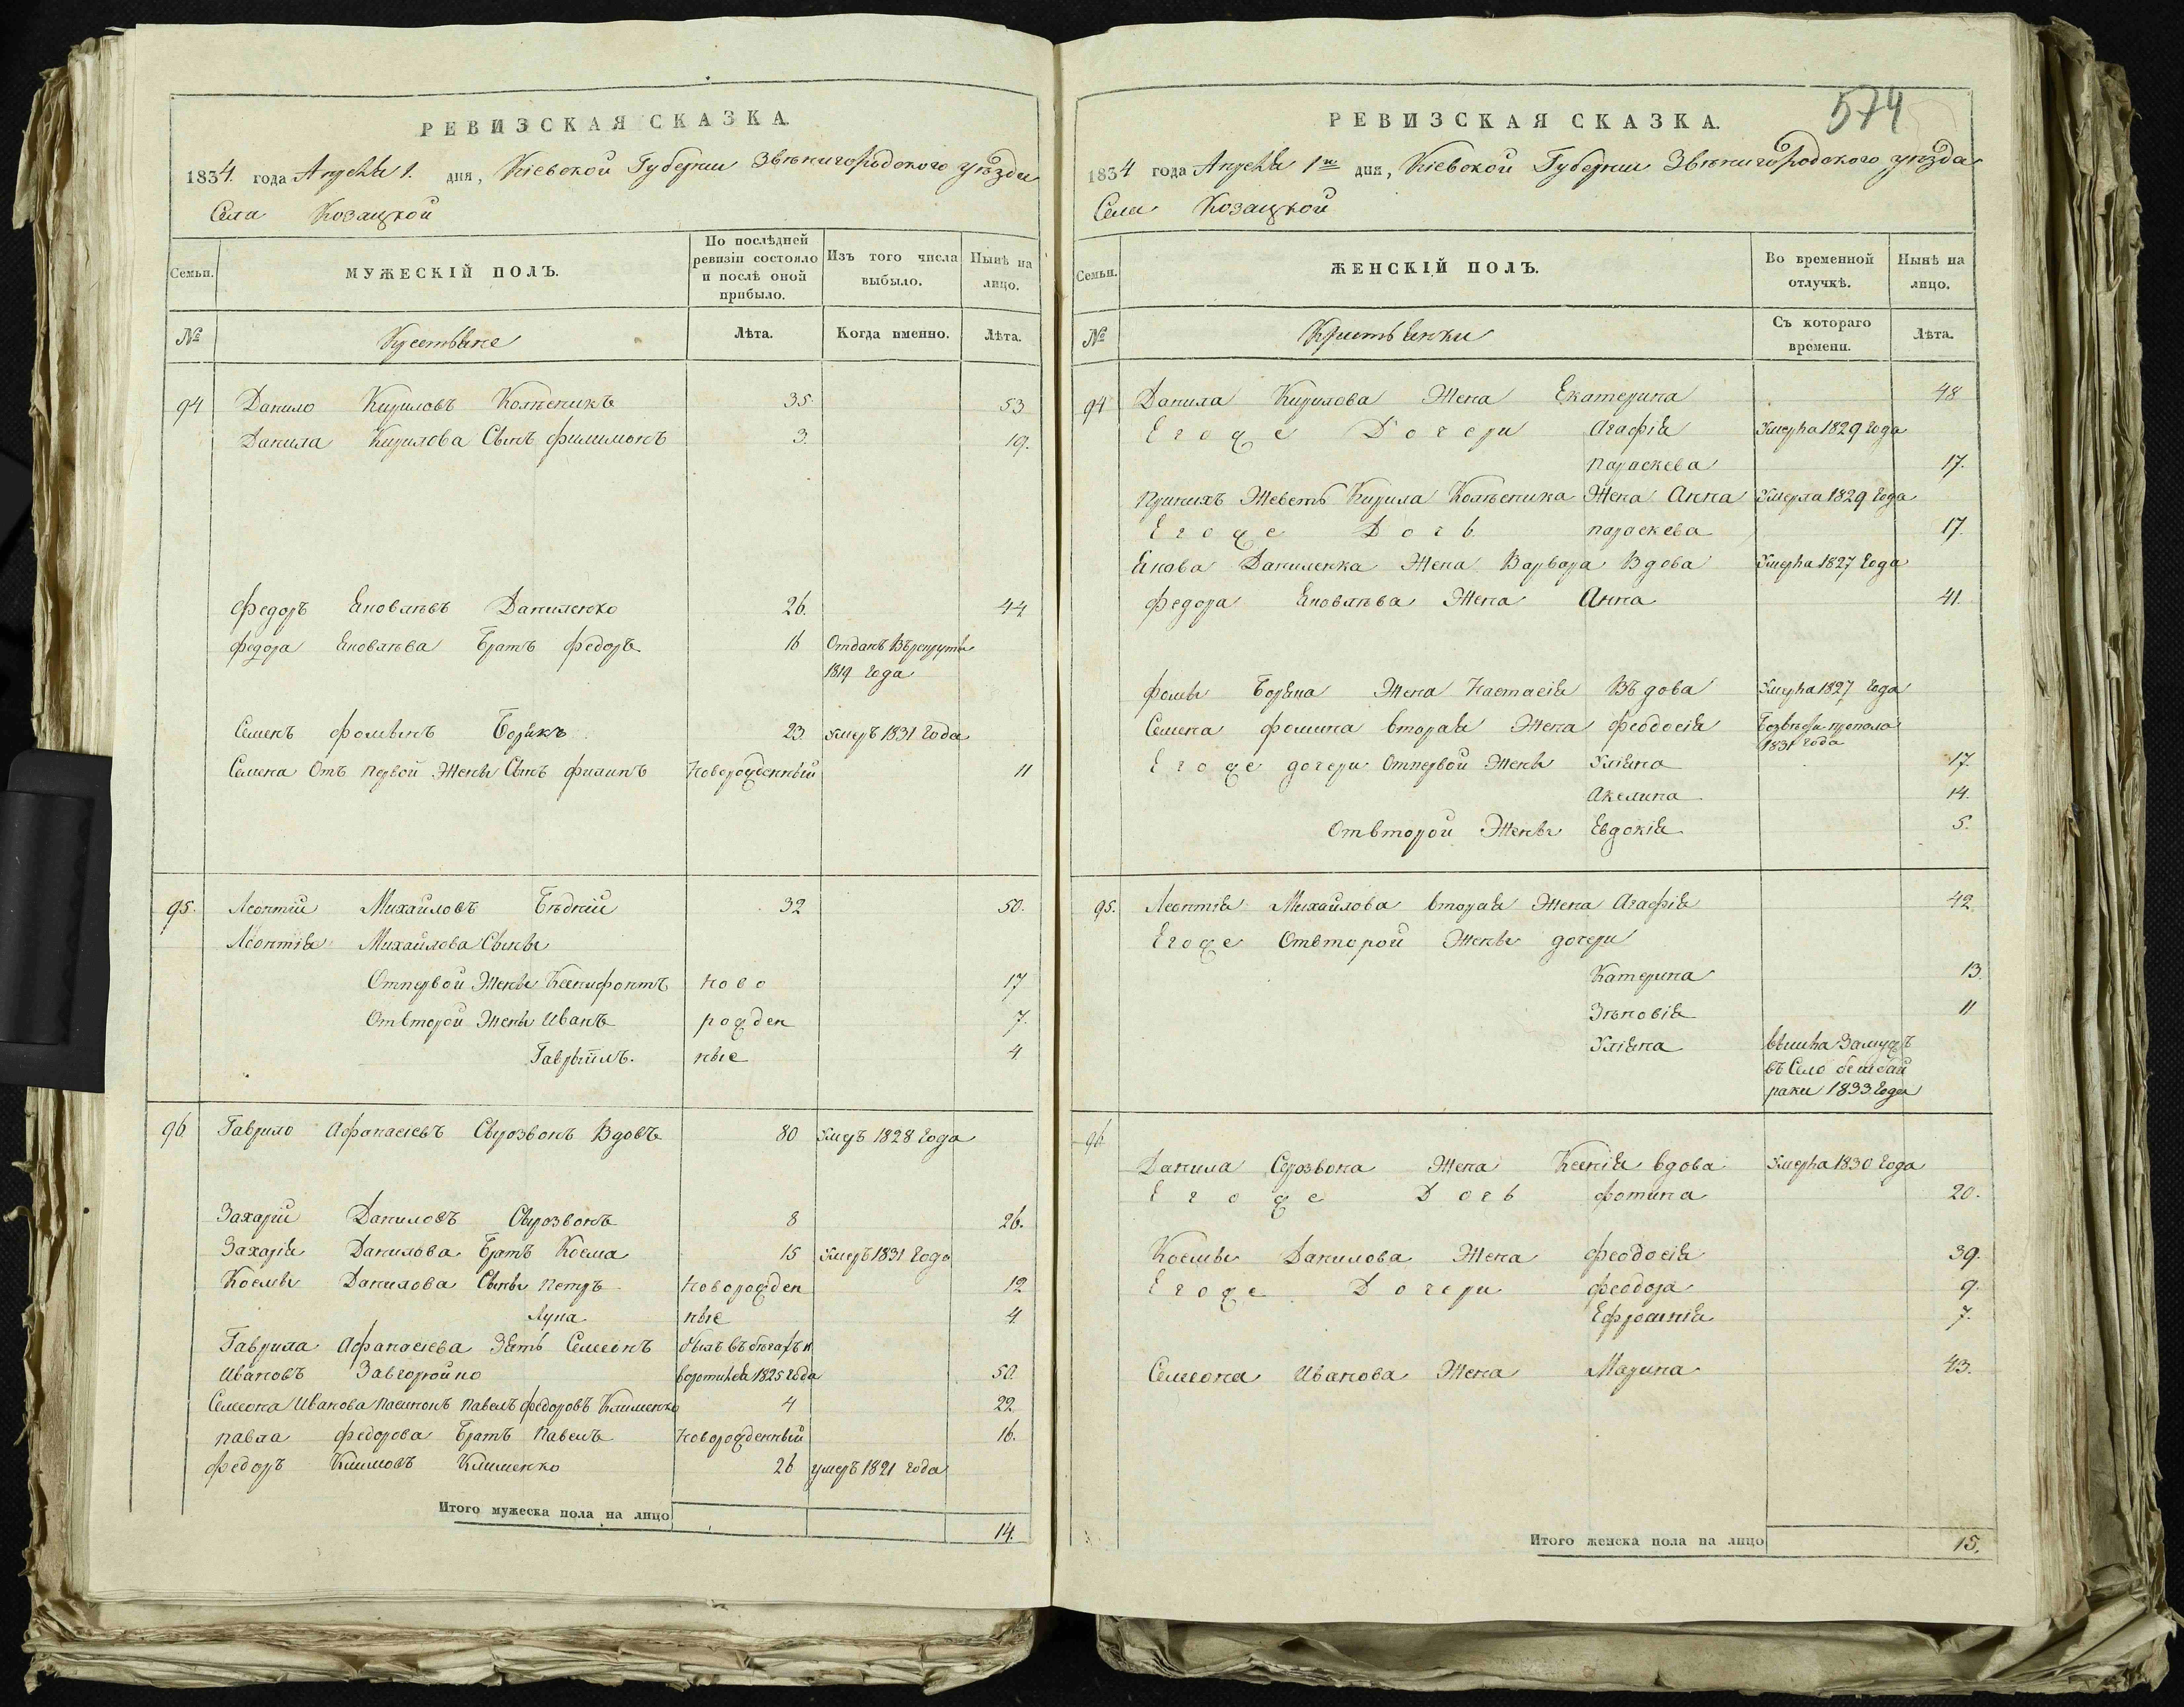 РЕВИЗСКАЯ СКАЗКА.
1834. года Апреля 1. дня, Кіевской Губерніи Звѣнигородского уѣзда
Села Козацкой
Семьи.
МУЖЕСКІЙ ПОЛЪ.
По послѣдней ревизіи состояло и послѣ оной прибыло.
Изъ того числа выбыло.
Нынѣ на лицо.
№
Крестьяне
Лѣта.
Когда именно.
Лѣта.
94 Данило Кириловъ Колѣсникъ 35. 53
Данила Кирилова Сынъ филимонъ 3. 19.
федоръ Яковлѣвъ Даниленко 26. 44
федора Яковлѣва Братъ федоръ 16 Отданъ Врекруты
1819 года
Семенъ фоминъ Борякъ 23 умеръ 1831 года
Семена Отъ первой Жены Сынъ филипъ Новорожденный 11
95. Леонтій Михайловъ Бѣдній 32 50.
Леонтія Михайлова Сыны
Отпервой Жены Ксенифонтъ ново 17
Отвторой Жены Иванъ рожден 7.
Гавріилъ. ные 4
96 Гаврило Афанасіевъ Сырозвонъ Вдовъ 80 умеръ 1828 года
Захарій Даниловъ Сырозвонъ 8 26.
Захарія Данилова Братъ Косма 15 умеръ 1831 года
Космы Данилова Сыны петръ Новорожден 12
Лука ные 4
Гаврила Афанасіева Зять Семионъ былъ въ бѣгахъ и
Ивановъ Завгородно воротился 1825 года 50.
Семиона Иванова пасинокъ павелъ федоровъ Клименко 4 22
павла федорова Братъ павелъ Новорожденный 16.
федоръ Климовъ Клименко 26 умеръ 1821 года
Итого мужеска пола на лицо 14.
574
РЕВИЗСКАЯ СКАЗКА.
1834 года Апреля 1го дня, Кіевской Губерніи Звѣнигородского уѣзда
Села Козацкой
Семьи.
ЖЕНСКІЙ ПОЛЪ.
Во временной отлучкѣ.
Нынѣ на лицо.
№
Крестьянки
Съ котораго времени.
Лѣта.
94 Данила Кирилова Жена Екатерина 48
Егоже Дочери Агафія Умерла 1829 года
параскева 17.
принихъ Живетъ Кирила Колѣсника Жена Анна Умерла 1829 года
Егоже Дочь параскева 17.
Якова Даниленка Жена Варвара Вдова Умерла 1827 года
федора Яковлѣва Жена Анна 41.
фомы Боряка Жена Настасія Вдова Умерла 1827 года
Семена фомина вторая Жена феодосія Безвѣсти пропала
1831 года
Егоже дочери Отпервой Жены Уліяна 17.
Акелина 14.
Отвторой Жены Евдокія 5.
95. Леонтія Михайлова вторая Жена Агафія 42
Егоже Отвторой Жены дочери
Катерина 13.
Зѣновія 11
Уліяна вышла Замужъ
въ Село
раки 1833 года
96
Данила Сирозвона Жена Ксенія вдова Умерла 1830 года
Егоже Дочь фотина 20.
Космы Данилова Жена феодосія 39.
Егоже Дочери феодора 9.
Ефросинія 7.
Семиона Иванова Жена Марина 43.
Итого женска пола на лицо 15.